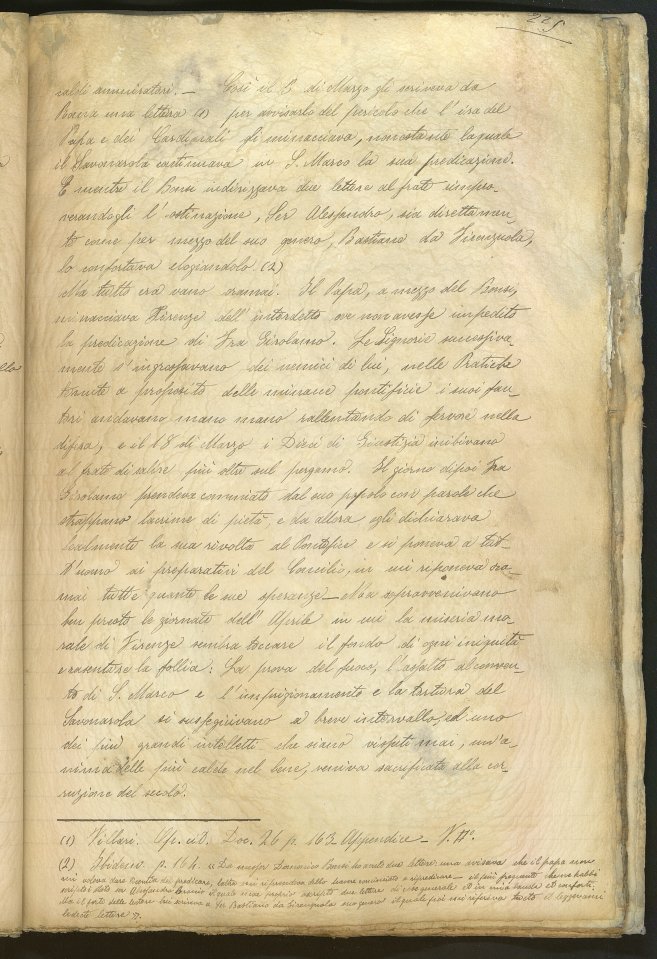 225
caldi ammiratori. — Così il 2 di Marzo gli scriveva da
Roma una lettera (1) per avvisarlo del pericolo che l'ira del
Papa e dei Cardinali gli minacciava, nonostante la quale
il Savonarola continuava in S. Marco la sua predicazione.
E mentre il Bonsi indirizzava due lettere al frate rimpro-
verandogli l'ostinazione, Ser Alessandro, sia direttamen-
te come per mezzo del suo genero, Bastiano da Firenzuola,
lo confortava elogiandolo. (2)
Ma tutto era vano oramai. Il Papa, a mezzo del Bonsi,
minacciava Firenze dell'interdetto ove non avesse impedito
la predicazione di Fra Girolamo. Le Signorie successiva-
mente s'ingrossavano dei nemici di lui, nelle Pratiche
tenute a proposito delle minacce pontificie i suoi fau-
tori andavano mano mano rallentando di fervore nella
difesa, e il 18 di Marzo i Dieci di Giustizia inibivano
al frate di salire più oltre sul pergamo. Il giorno dipoi Fra
Girolamo prendeva commiato dal suo popolo con parole che
strappano lacrime di pietà e da allora egli dichiarava
lealmente la sua rivolta al Pontefice e si poneva a tut-
t'uomo ai preparativi del Concilio, in cui riponeva ora-
mai tutte quante le sue speranze. — Ma sopravvenivano
ben presto le giornate dell'Aprile in cui la miseria mo-
rale di Firenze sembra toccare il fondo di ogni iniquità
e rasentare la follia. La prova del fuoco, l'assalto al conven-
to di S. Marco e l'imprigionamento e la tortura del
Savonarola si susseguivano a breve intervallo, ed uno
dei più grandi intelletti che siano vissuti mai, un'a-
nima delle più calde nel bene, veniva sacrificata alla cor-
ruzione del secolo.
(1) Villari. Op. cit. Doc. 26 p. 163. Appendice — V. IIº.
(2) Ibidem. p. 164. « Da messer Domenico Bonsi ho avute due lettere: una avisava che il papa non
mi voleva dare licentia del predicare, l'altra mi riprendeva dello havere cominciato a ripredicare —
scripto è stato da Alessandro suo proprio scripto due lettere
Ma il porto delle lettere Ser Bastiano da Firenzuola suo genero il quale poi mi referiva tucto et leggevami
dedecte lettere ».